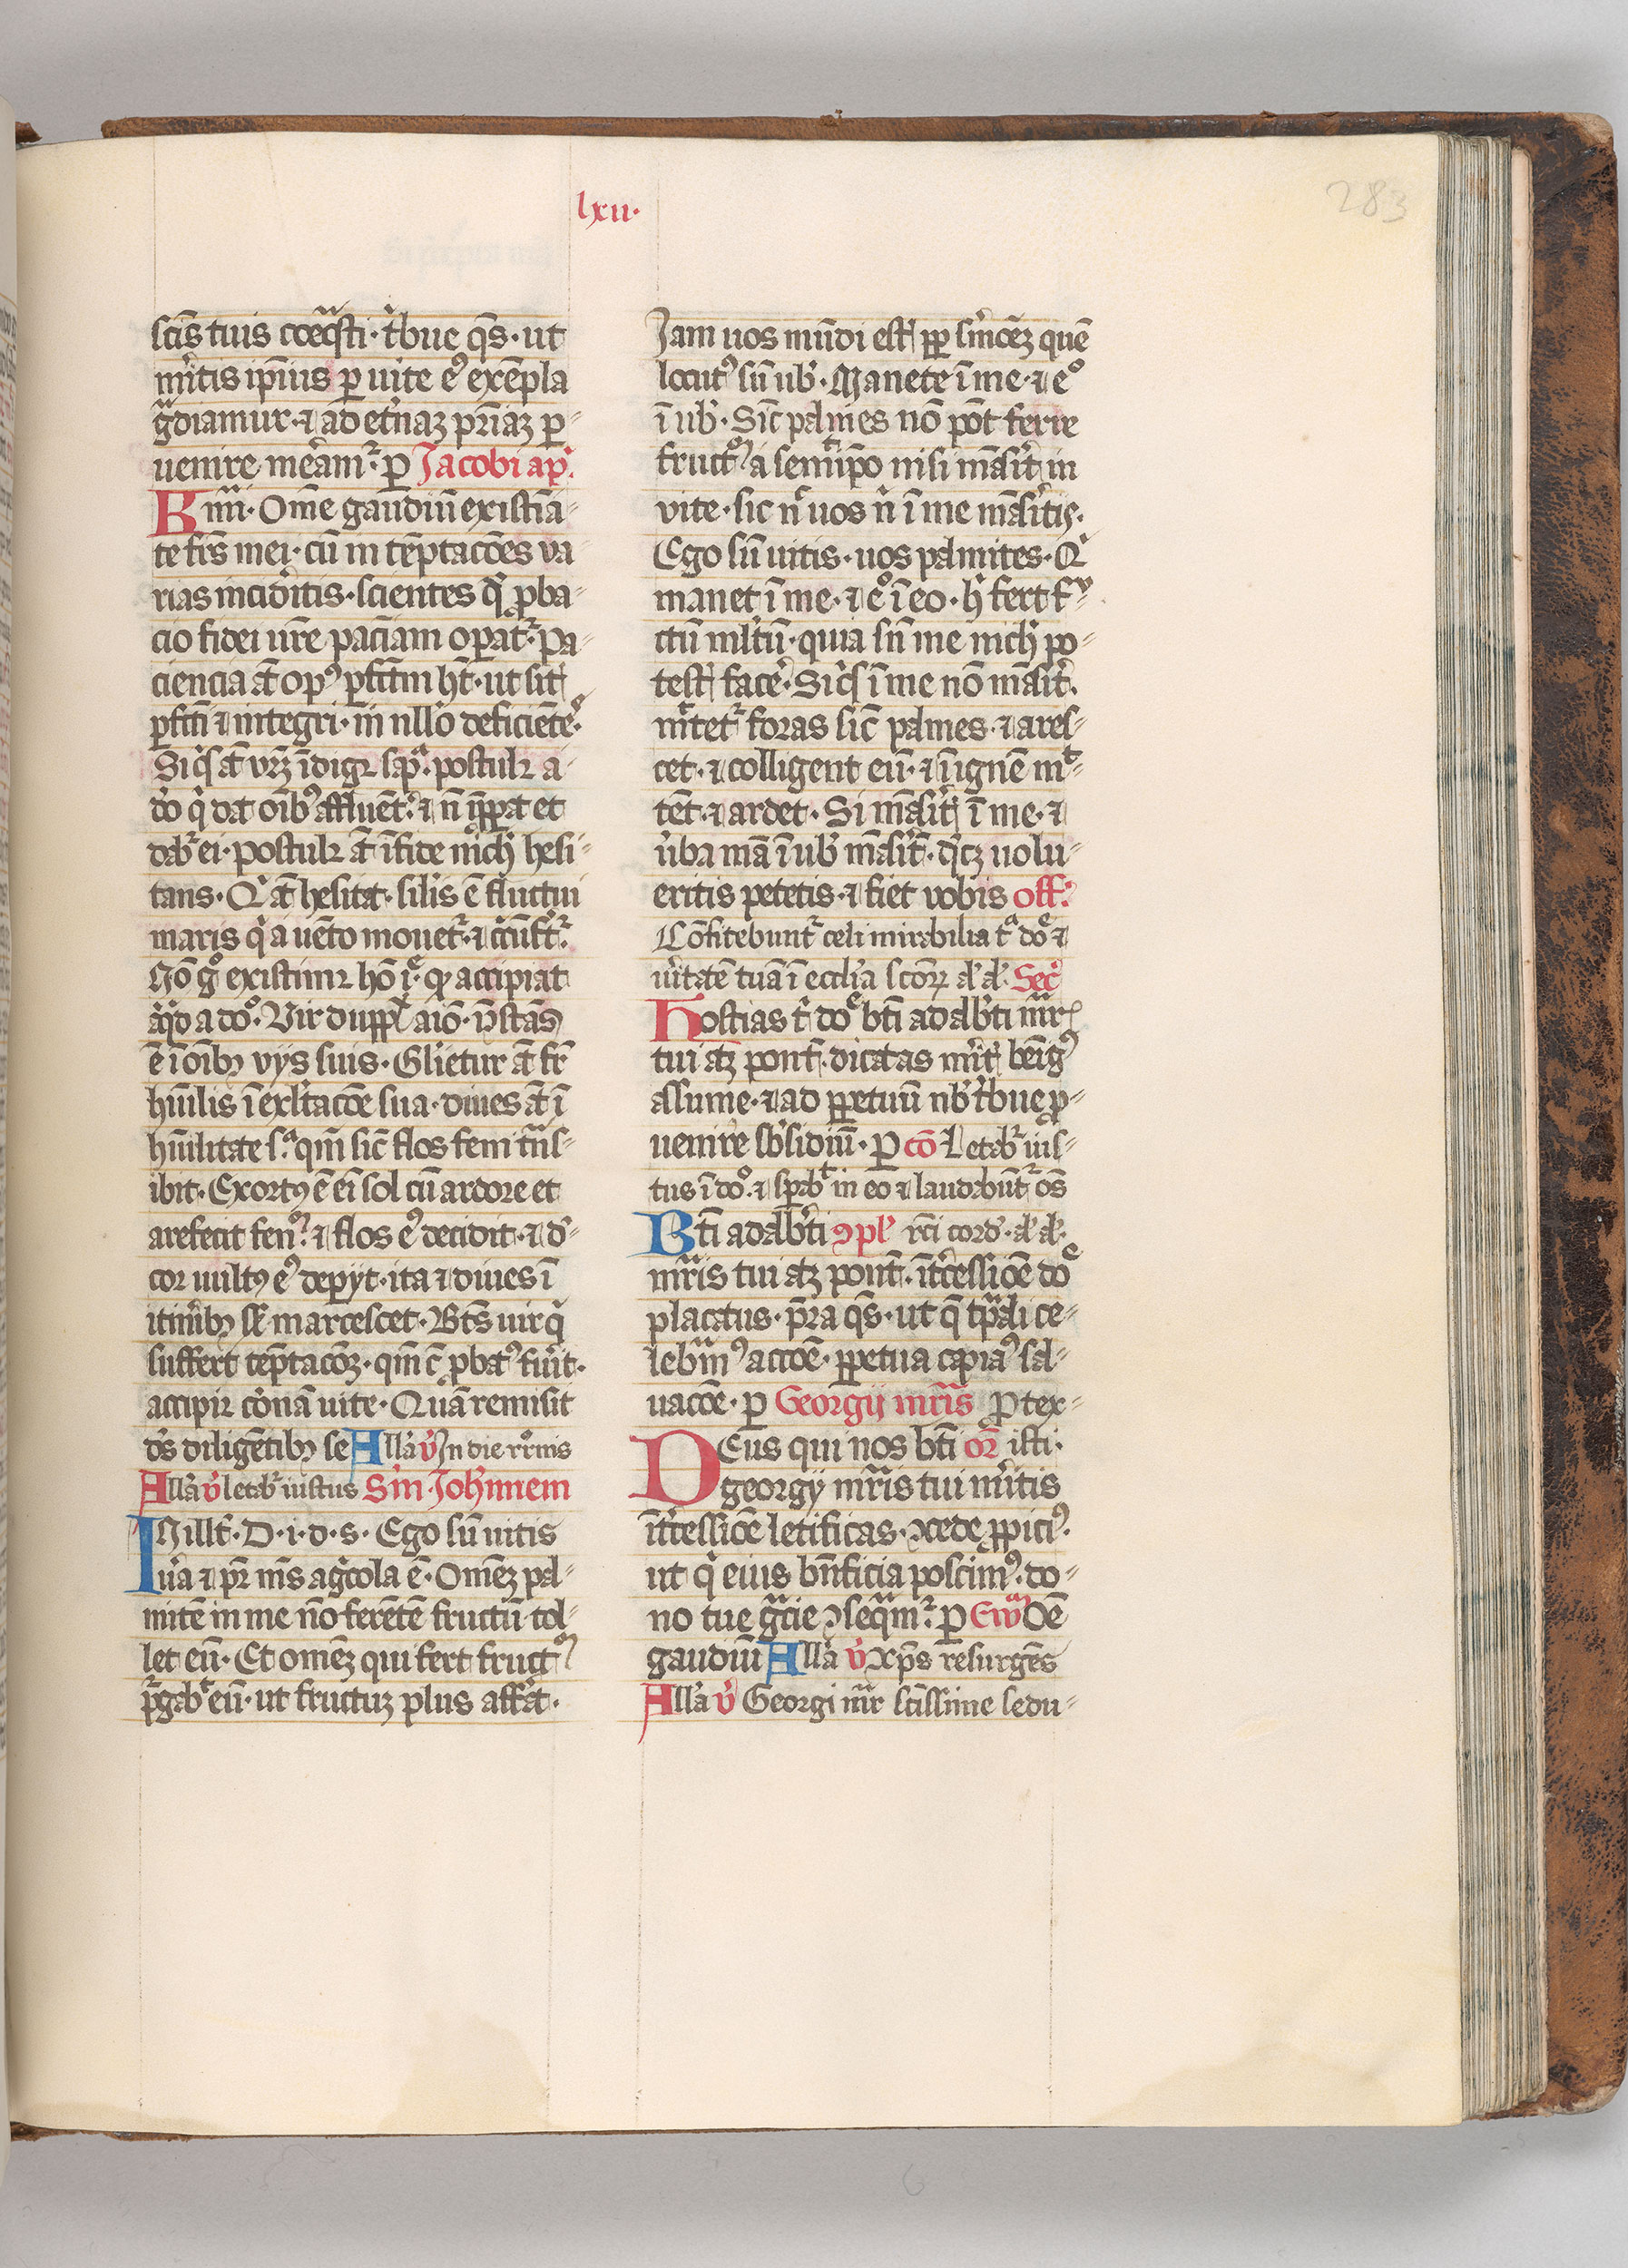 lxii·
283
sc̄is tuis coeq̄sti· t'bue q̄s· ut
m'itis ip̄ius ꝑ uite eꝰ exempla
g̃diamur· ⁊ ad et'naꝫ pr̄iaꝫ ꝑ-
uenire mēam^r ꝑ Jacobi ap̄
Kmī· Omē gaudiū existīa-
te fr̄s mei· cū in tēptacōes va-
rias incid'itis· scientes q̄ ꝓba-
cio fidei ur̄e pac̄iam oꝑat^r· pa-
ciencia āt opꝰ ꝑfc̄tm hꝫt· ut sit'
ꝑfc̄ti ⁊ integri· in nllo deficiēte^s
Siq̄s āt vr̄ꝫ īdigꝫ sap̄^a· postulꝫ a
do q̄ dat oībꝰ affluēt^r· ⁊ n̄ īꝓꝑat et
dab^r ei· postulꝫ āt ī fide nichil hesi-
tans· Q^i āt hesitat· silīs ē fluctui
maris q̄ a uēto mouet^r· ⁊ c̄cūft^r·
Nō g° existimꝫ hō i^e· qꝫ accipiat
aliq̄d a do°· Vir dupplex aīo· īcōstās
ē ī oībꝫ vijs suis· Gl'ietur āt fr̄
hūilis ī exl'tacōe sua· diues āt ī
hūilitate s^a· qm̄ sic̄ flos feni t^ans-
ibit· Exortꝰ ē eī sol cū ardore et
arefecit fen^u· ⁊ flos eꝰ decidit· ⁊ d'-
cor uultꝰ eꝰ depijt· ita ⁊ diues ī
itin'ibꝫ s^s marcescet· Bt̄s uir q̄
suffert tēptacōeꝫ· qm̄ c̄ ꝓbatꝰ fuit·
accipiꝫ co'nā uite· Quā remisit
d's diligētibꝫ se All'a v̄ In die r'rōnis
All'a v̄ letab^r iustus Sm̄· Joh'nnem
INillt̄· D· i· d· s· Ego sū uitis
u'a ⁊ pr̄ m̄s ag'cola ē· Omēꝫ pal-
mitē in me nō ferētē fructū tol-
let eū· Et omēꝫ qui fert fruct^u
p^rgab^t eū· ut fructuꝫ plus affat·
Jam uos mūdi est' ꝓp̄ s'mōeꝫ quē
locutꝰ sū ub'· Manete ī me· ⁊ e°
ī ub'· Sic̄ palmes nō pōt ferre
fruct^u a semetip̄o nisi māsit in
vite· sic n̄ uos n̄ ī me māsitis·
Ego sū uitis· uos palmites· Q^i
manet ī me· ⁊ e° ī eo· h' fert f^u-
ctū ml'tū· quia sn̄ me nich' po-
test' face'· Siq̄s ī me nō māsit·
m^rtet^r foras sic̄ palmes· ⁊ ares-
cet· ⁊ colligent eū· ⁊ ī ignē m^t-
tēt· ⁊ ardet· Si māsit' ī me· ⁊
u'ba mā ī ub' māsit'· q̄dcꝫ uolu-
eritis petetis· ⁊ fiet vobis off̄·
Cōfitebunt^r celi mirabilia t^a do^e ⁊
u'itatē tuā ī eccl'ia scōrꝫ al' al'· Sec'
Hostias t' do^e bt̄i adalb'ti m^rris
tui atꝫ pont̄· dicatas m'it' benigꝰ
assume· ⁊ ad ꝑpetuū nb' t'bue ꝓ-
uenire sb'sidiū· ꝑ cō Letab^r ius-
tus ī do°· ⁊ sꝑab^t in eo ⁊ laudabūt^r oēs
Bt̄i adalb'ti ꝯpl' rc̄i cord'· al' al'·
m^rris tui atꝫ pont̄· īt'cessiōe do^e
placatus· p̄ra q̄s· ut q̄ tꝑali ce-
leb^ramꝰ accōe· ꝑpetua capiaꝰ sal-
uacōe· ꝑ Georgij mr̄is ꝓtex-
DEus qui nos bt̄i or̄ isti·
georgij mr̄is tui m'itis
īt'cessiōe letificas· ꝯcede ꝓpiciꝰ·
ut q̄ eius bn̄ficia poscimꝰ· do-
no tue gr̄cie ꝯseq̄m^r· ꝑ Ew^am Oē
gaudiū All'a v̄ Xp̄s resurgēs
All'a v̄ Georgi m^rr sc̄issime sedu-